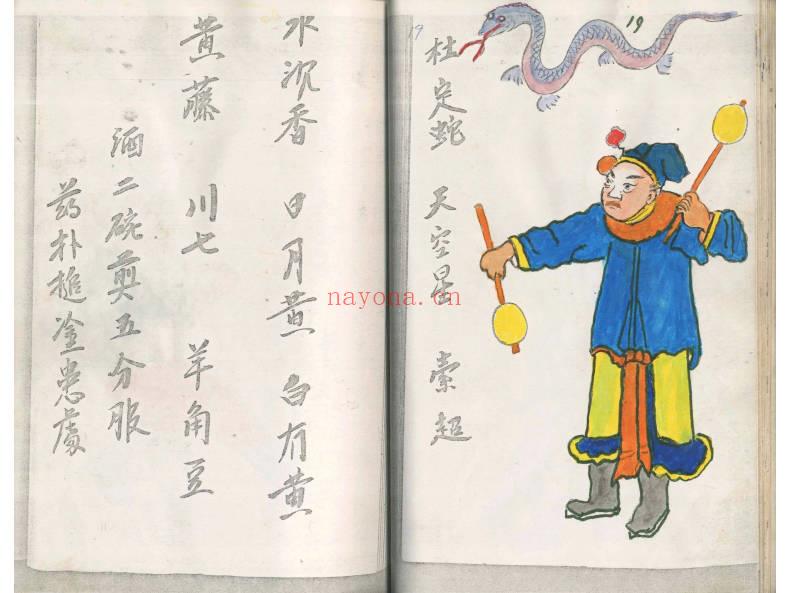 19
19
杜定蛇 天空星 索超
水沉香 日月黄 白有黄
黄藤 川七 羊角豆
酒二碗煎五分服
药朴搥金患處
nayona.cn